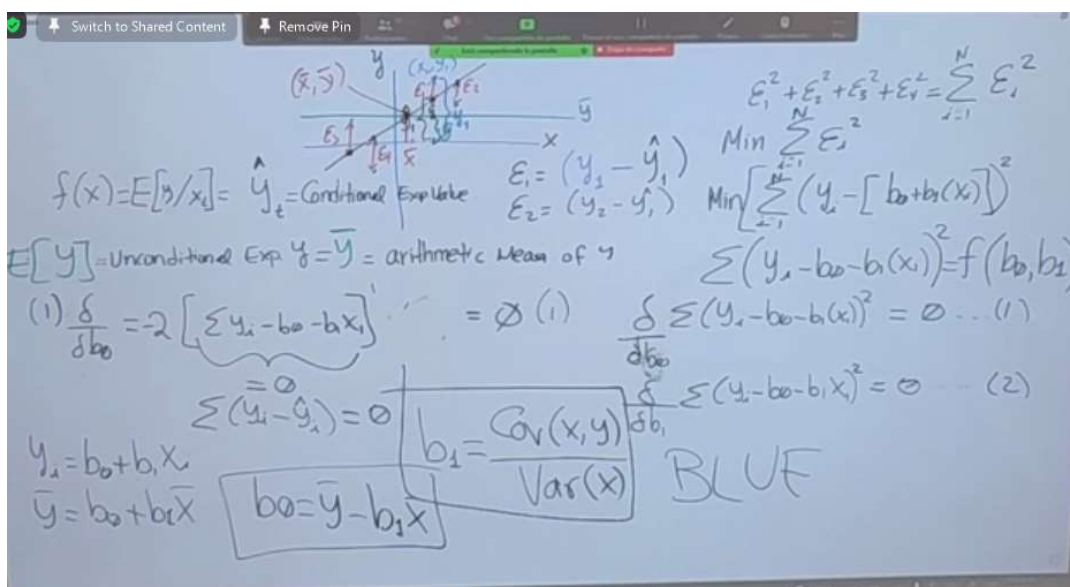 Switch to Shared Content
Remove Pin
y
(x̄,ȳ)
(x₁,y₁)
ε₁
ε₂
ȳ
ε₃
ε₄
x̄
x
ε₁²+ε₂²+ε₃²+ε₄²=∑ᵢ₌₁ᴺ εᵢ²
Min ∑ᵢ₌₁ᴺ εᵢ²
ε₁=(y₁-ŷ₁)
f(x)=E[y/xᵢ]=ŷₜ=Conditional Exp Value
ε₂=(y₂-ŷ₁)
Min[∑ᵢ₌₁ᴺ(yᵢ-[b₀+b₁(xᵢ)])²
E[y]=Unconditional Exp. y=ȳ=arithmetic Mean of y
∑(yᵢ-b₀-b₁(xᵢ))²=f(b₀,b₁)
(1) δ/δb₀=-2[∑yᵢ-b₀-b₁xᵢ]¹ =∅ (1)
δ/δb₀ ∑(yᵢ-b₀-b₁(x))²=0...(1)
=0
∑(yᵢ-ŷᵢ)=0
δ/δb₁ ∑(yᵢ-b₀-b₁xᵢ)²=0 ... (2)
b₁=Cov(x,y)/Var(x)
BLUE
yᵢ=b₀+b₁xᵢ
ȳ=b₀+b₁x̄
b₀=ȳ-b₁x̄